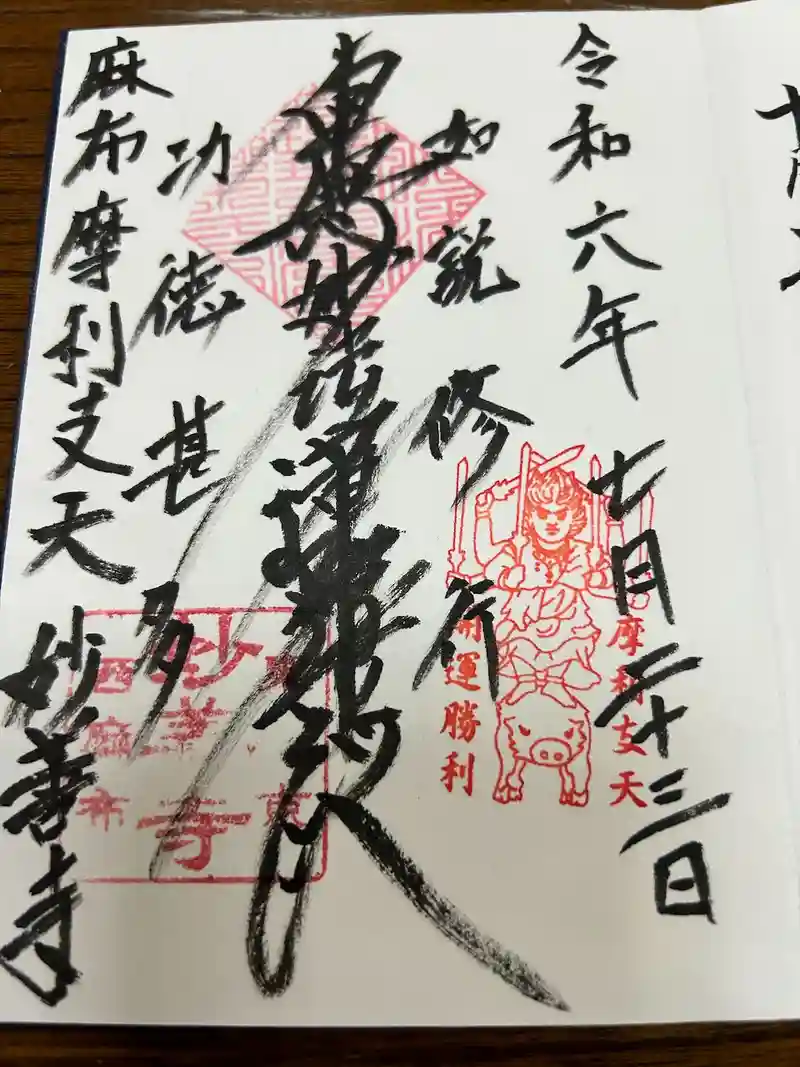 令和六年七月二十三日
如説修行
南無妙法蓮華経
功徳甚多
麻布摩利支天 妙善寺
摩利支天
開運勝利
東京
妙善寺
西麻布